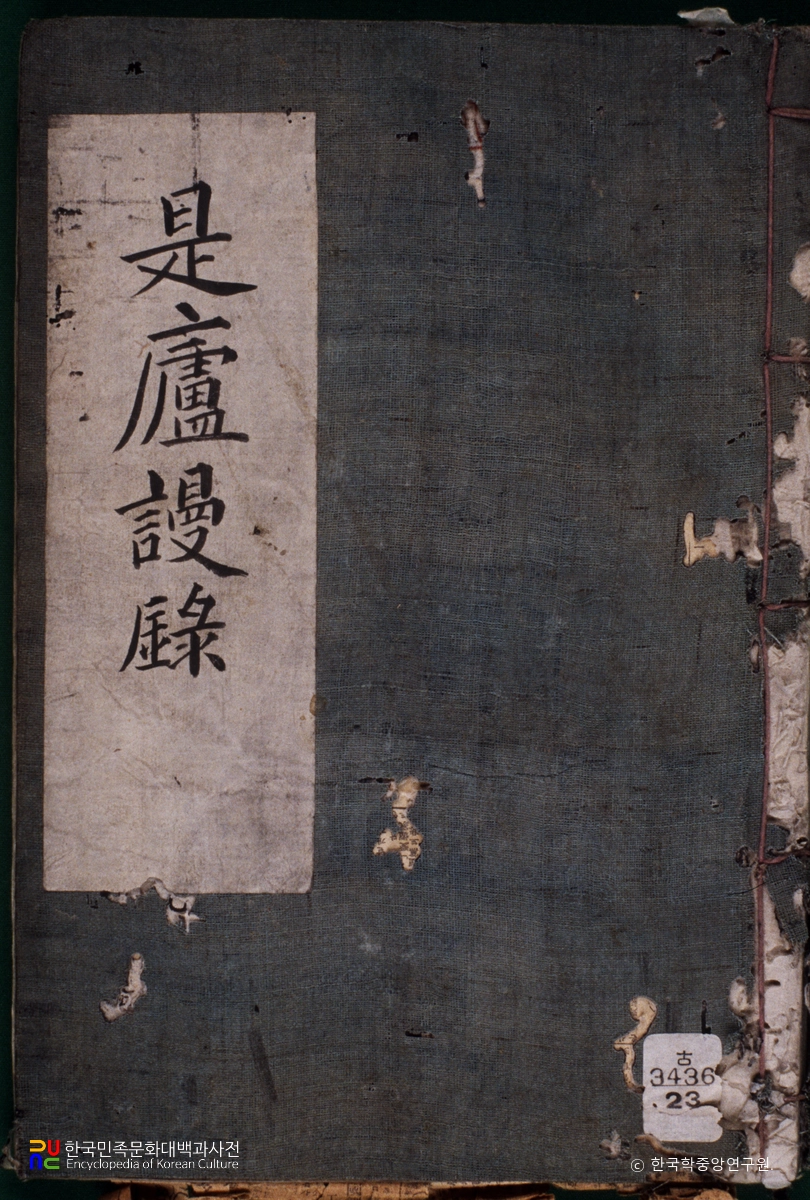 是廬謾錄
古
3436
23
한국민족문화대백과사전
Encyclopedia of Korean Culture
© 한국학중앙연구원